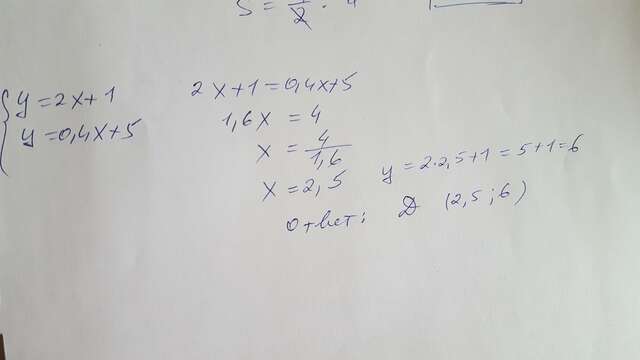 S = 1/2 · 4
{ y = 2x+1
y = 0,4x+5
2x+1 = 0,4x+5
1,6x = 4
x = 4/1,6
x = 2,5
y = 2·2,5+1 = 5+1=6
Ответ: D (2,5; 6)